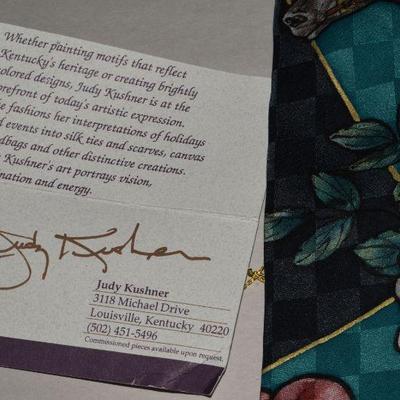 Whether painting motifs that reflect
Kentucky's heritage or creating brightly
colored designs, Judy Kushner is at the
forefront of today's artistic expression.
fashions her interpretations of holidays
events into silk ties and scarves, canvas
and other distinctive creations.
Kushner's art portrays vision,
and energy.
Judy Kushner
Judy Kushner
3118 Michael Drive
Louisville, Kentucky 40220
(502) 451-5496
Commissioned pieces available upon request.